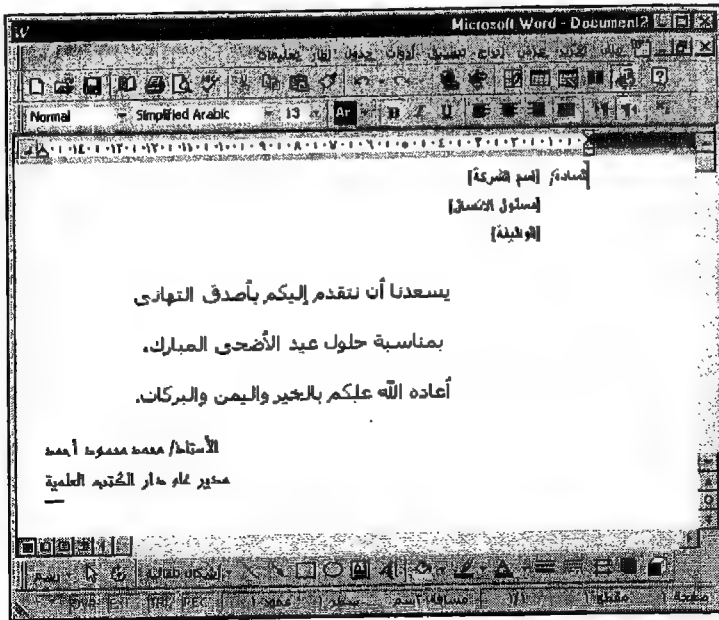 Microsoft Word - Document2
ملف تحرير عرض إدراج تنسيق أدوات جدول إطار تعليمات
Normal Simplified Arabic 13 Ar B I U
١٤ ١٣ ١٢ ١١ ١٠ ٩ ٨ ٧ ٦ ٥ ٤ ٣ ٢ ١
السادة/ [اسم الشركة]
[مسئول الاتصال]
[الوظيفة]
يسعدنا أن نتقدم إليكم بأصدق التهانى
بمناسبة حلول عيد الأضحى المبارك،
أعاده الله عليكم بالخير واليمن والبركات.
الأستاذ/ محمد محمود أحمد
مدير عام دار الكتب العلمية
رسم أشكال تلقائية
صفحة ١ مقطع ١ ١/١ مسافة ٢سم سطر ١ عمود ١ REC